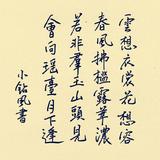 雲想衣裳花想容
春風拂檻露華濃
若非羣玉山頭見
會向瑤臺月下逢
小鈷風書